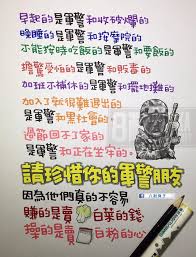 早起的是軍警和收破爛的
晚睡的是軍警和按摩院的
不能按時吃飯的是軍警和要飯的
擔驚受怕的是軍警和販毒的
加班不補休的是軍警和擺地攤的
加入了就很難退出的
是軍警和黑社會的
過節回不了家的
是軍警和正在坐牢的。
請珍惜你的軍警朋友
因為他們真的不容易
賺的是賣白菜的錢
操的是賣白粉的心